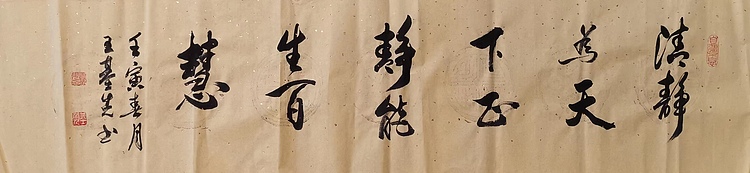 清静
为天
下正
静能
生百
慧
壬寅春月
王基生书